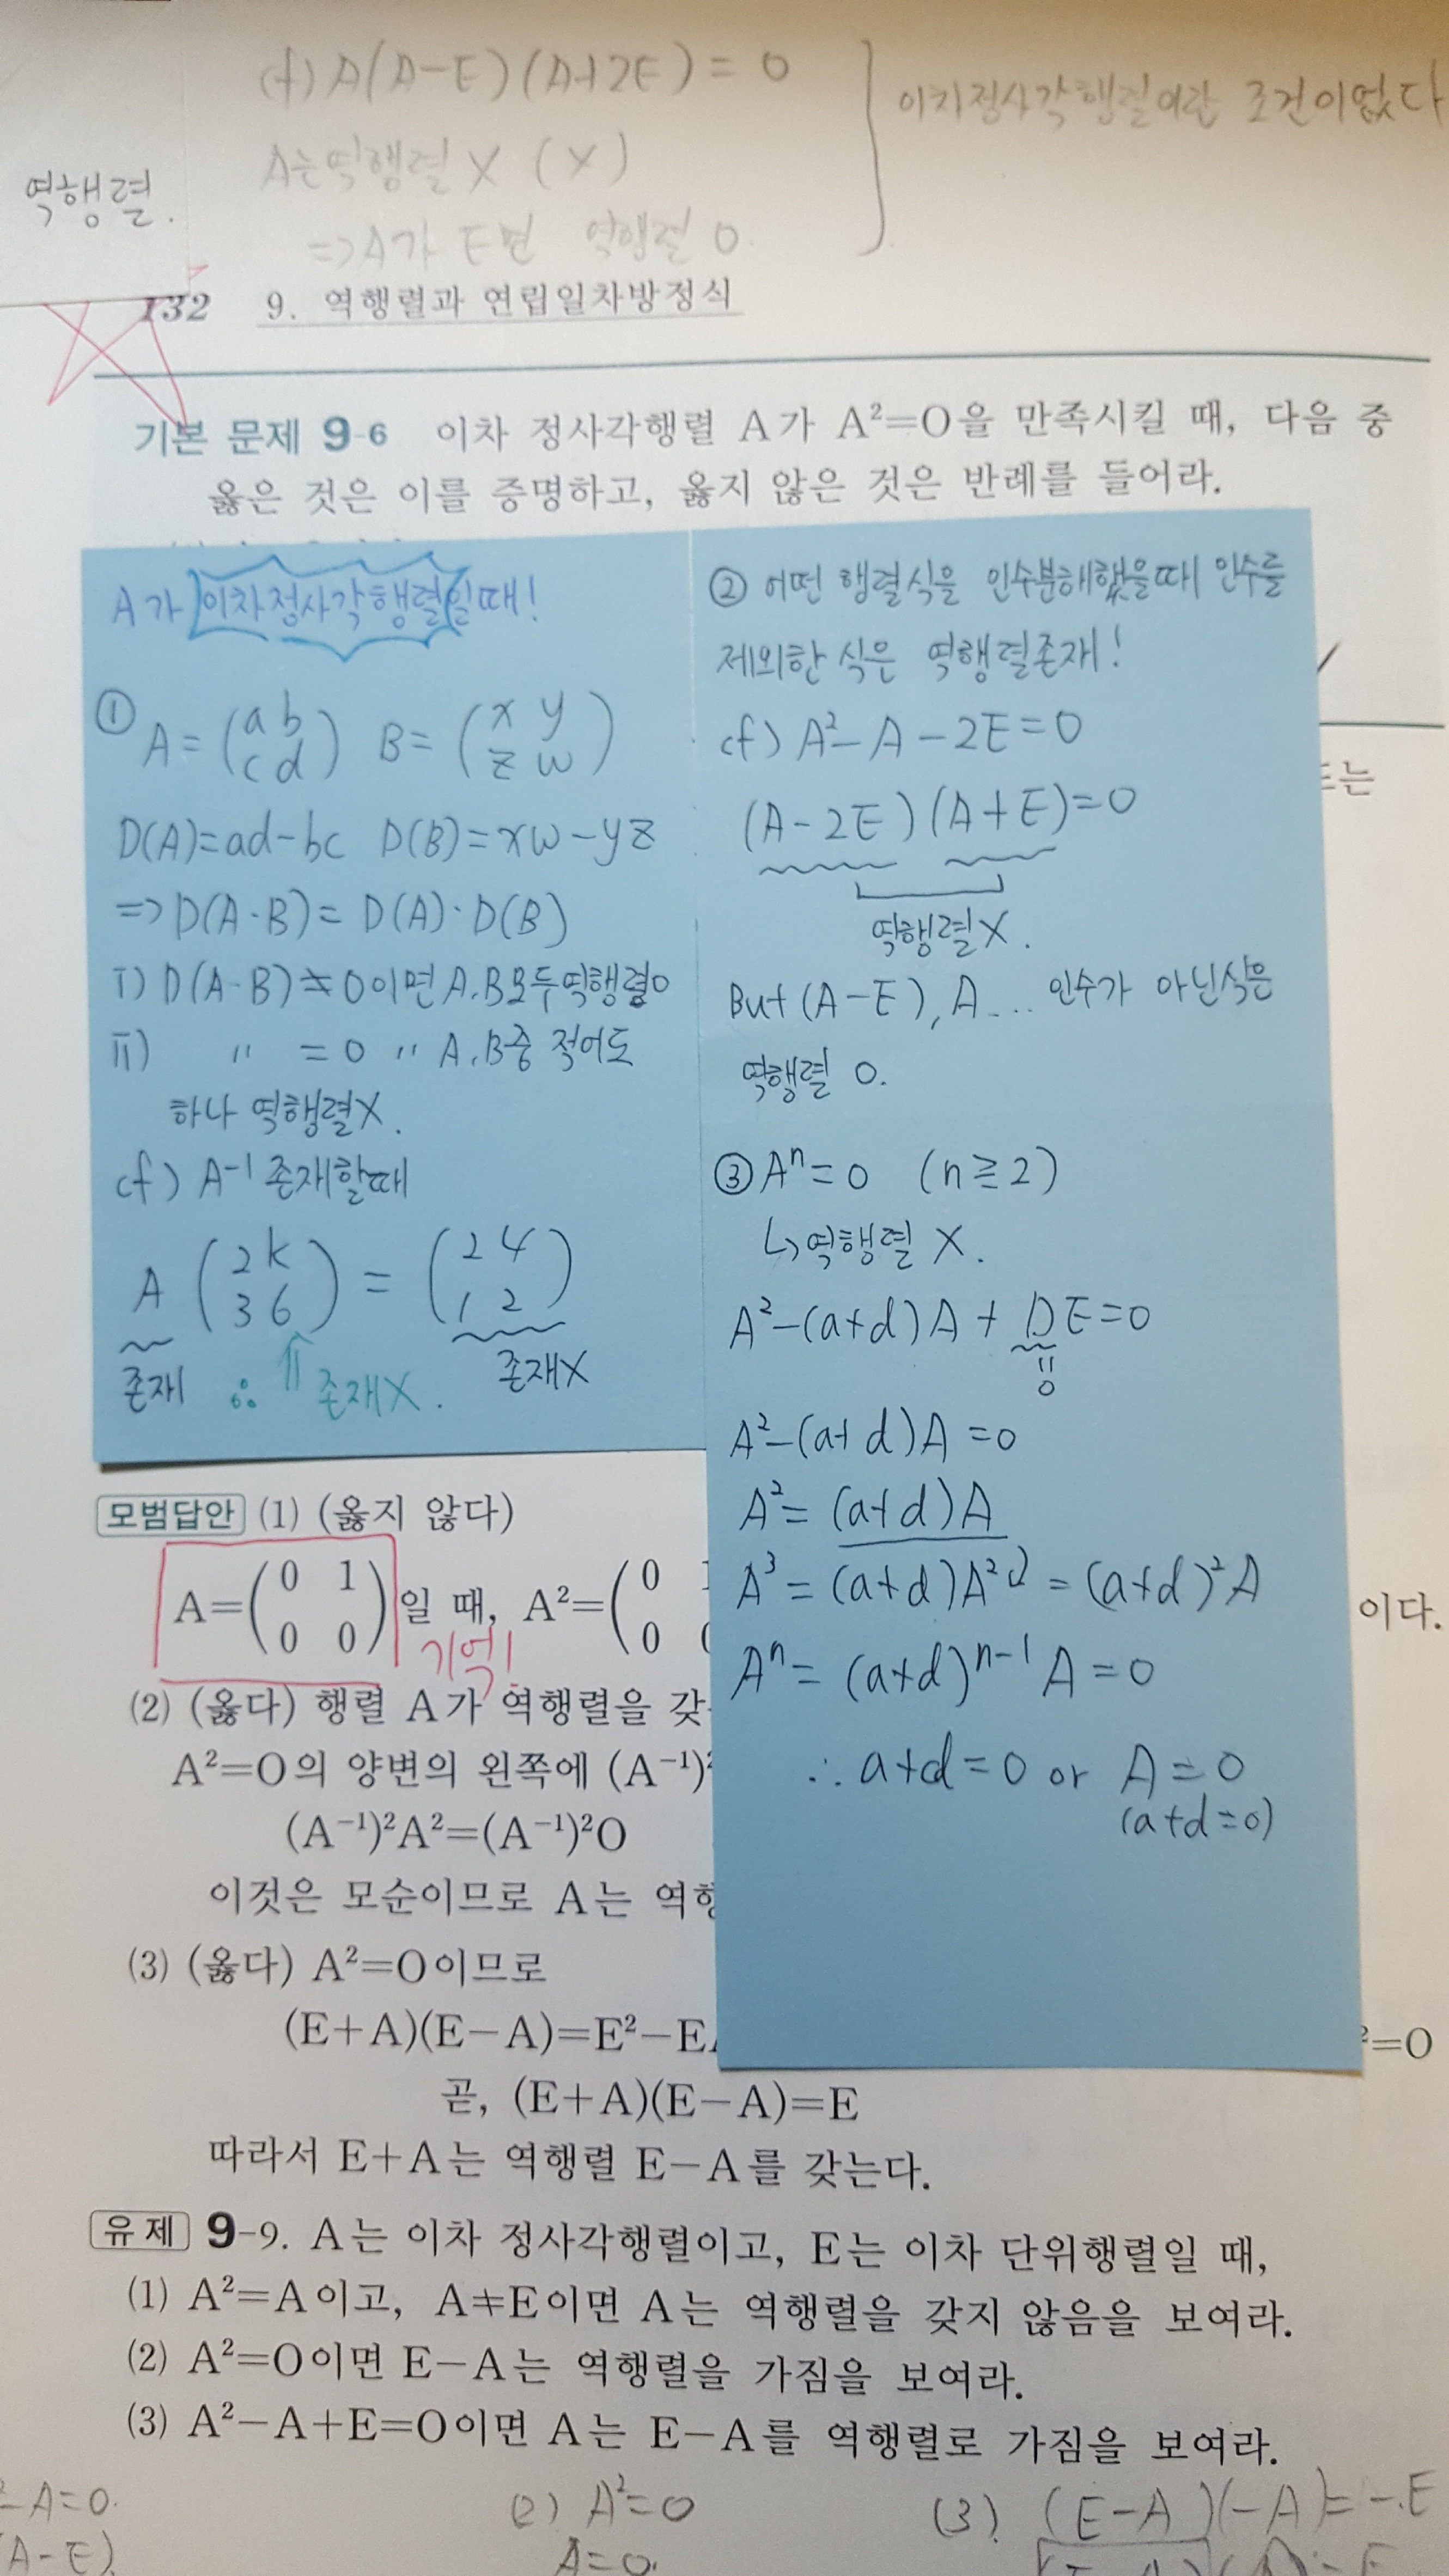 (f) A(A-E)(A+2E) = 0
A는 역행렬 X (X)
=> A가 E면 역행렬 O.
이차정사각행렬이란 조건이 없다
역행렬.
132 9. 역행렬과 연립일차방정식
기본 문제 9-6 이차 정사각행렬 A가 A²=O을 만족시킬 때, 다음 중
옳은 것은 이를 증명하고, 옳지 않은 것은 반례를 들어라.
A가 이차정사각행렬일때!
① A = (a b / c d) B = (x y / z w)
D(A)=ad-bc D(B)=xw-yz
=> D(A·B) = D(A)·D(B)
i) D(A·B) ≠ 0이면 A,B모두 역행렬 O
ii) 〃 = 0 〃 A,B중 적어도
하나 역행렬X.
cf) A⁻¹ 존재할때
A (2 k / 3 6) = (2 4 / 1 2)
존재 ∴ ⇑ 존재X. 존재X
② 어떤 행렬식을 인수분해했을때 인수를
제외한 식은 역행렬존재!
cf) A²-A-2E=0
(A-2E)(A+E)=0
역행렬X.
But (A-E), A... 인수가 아닌식은
역행렬 O.
③ Aⁿ=0 (n≥2)
↳역행렬 X.
A²-(a+d)A + DE=0
=0
A²-(a+d)A =0
A²= (a+d)A
A³ = (a+d)A² = (a+d)²A
Aⁿ = (a+d)ⁿ⁻¹ A = 0
∴ a+d=0 or A=0
(a+d=0)
는
모범답안 (1) (옳지 않다)
A=(0 1 / 0 0)일 때, A²=(0 1 / 0 0 이다.
기억!
(2) (옳다) 행렬 A가 역행렬을 갖
A²=O의 양변의 왼쪽에 (A⁻¹)²
(A⁻¹)²A²=(A⁻¹)²O
이것은 모순이므로 A는 역행
(3) (옳다) A²=O이므로
(E+A)(E-A)=E²-EA ²=O
곧, (E+A)(E-A)=E
따라서 E+A는 역행렬 E-A를 갖는다.
유제 9-9. A는 이차 정사각행렬이고, E는 이차 단위행렬일 때,
(1) A²=A이고, A≠E이면 A는 역행렬을 갖지 않음을 보여라.
(2) A²=O이면 E-A는 역행렬을 가짐을 보여라.
(3) A²-A+E=O이면 A는 E-A를 역행렬로 가짐을 보여라.
²-A=0. (2) A²=0 (3). (E-A)(-A)=-E
(A-E) A=0.